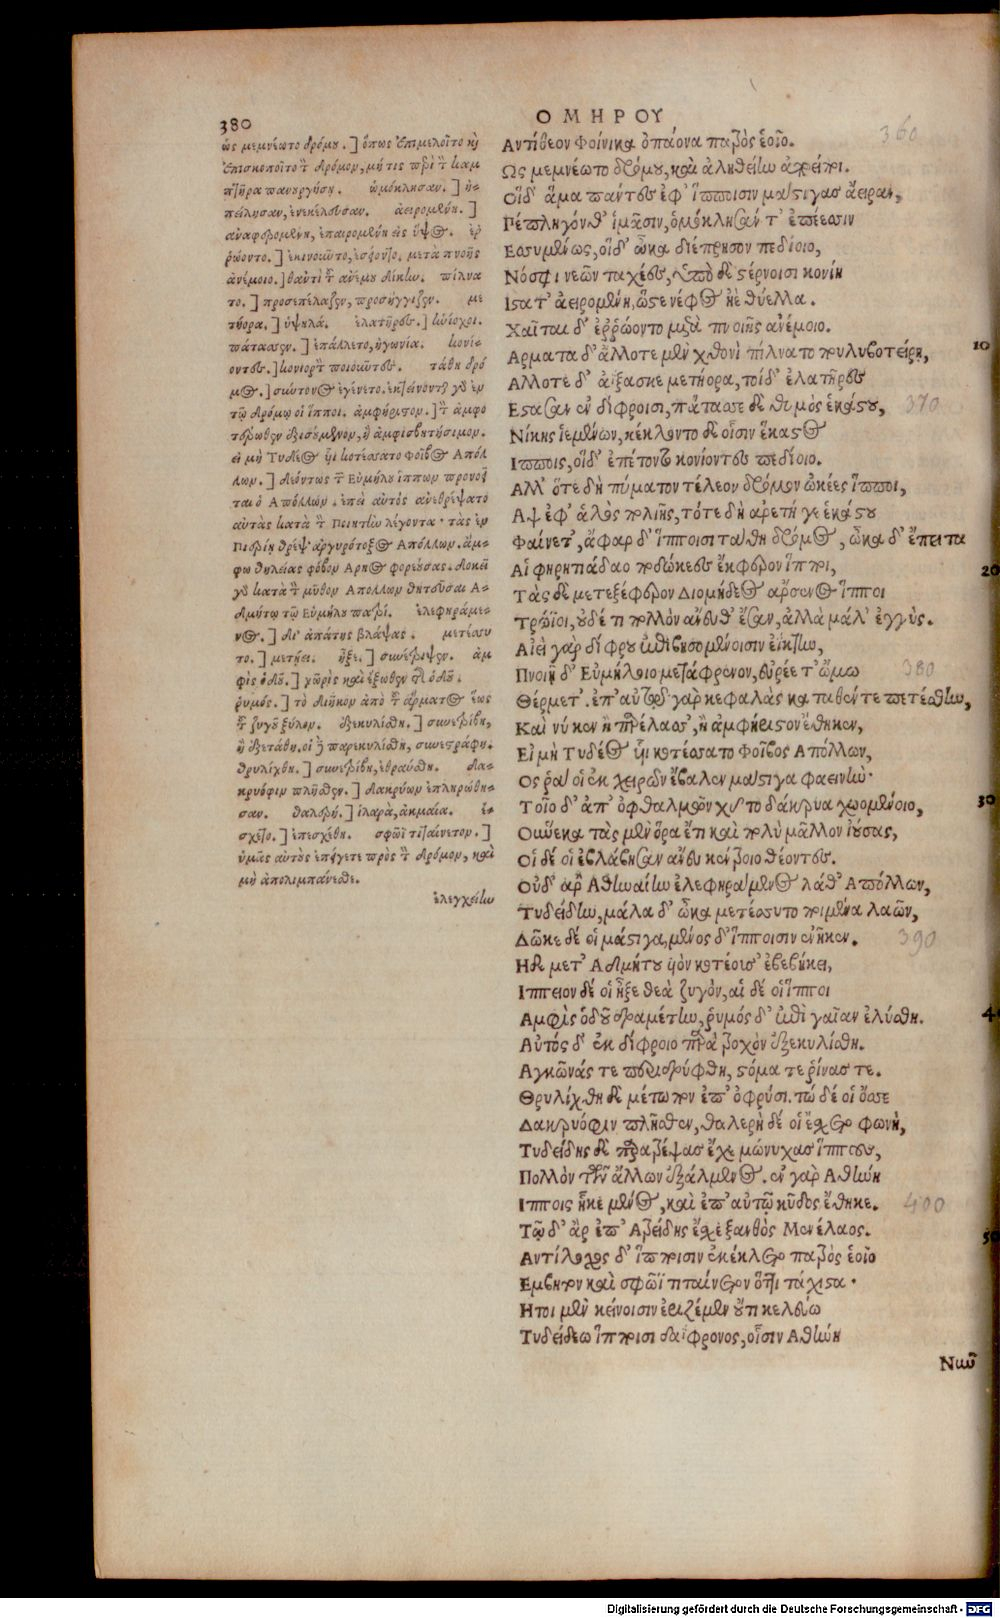 380
ΟΜΗΡΟΥ
ὡς μεμνέωτο δρόμου.] ὅπως ἐπιμελοῖτο καὶ
ἐπισκοποῖτο τὸν δρόμον, μή τις περὶ τὸν καμ
πτῆρα πανουργήσῃ. ὡμόκλησαν.] ἠ-
πείλησαν, ἐνεκέλευσαν. ἀειρομένη.]
ἀναφερομένη, ἐπαιρομένη εἰς ὕψος. ἐρ
ῥώοντο.] ἐκινοῦντο, ἐσείοντο. μετὰ πνοιῆς
ἀνέμοιο.] ἀντὶ τοῦ ἀνέμου δίκην. πίλνα
το.] προσεπέλαζεν, προσήγγιζεν. με
τήορα.] ὑψηλά. ἐλατῆρες.] ἡνίοχοι.
πάτασσεν.] ἐπάλλετο, ἠγωνία. κονί-
οντες.] κονιορτὸν ποιοῦντες. τάθη δρό
μος.] σύντονος ἐγένετο. ἐκτείνονται γὰρ ἐν
τῷ δρόμῳ οἱ ἵπποι. ἀμφήριστον.] τὸν ἀμφο
τέρωθεν ἐριζόμενον, ἢ ἀμφισβητήσιμον.
εἰ μὴ Τυδέος υἷι κοτέσσατο Φοῖβος Ἀπόλ
λων.] δεόντως τῶν Εὐμήλου ἵππων προνοεῖ
ται ὁ Ἀπόλλων. ἐπεὶ αὐτὸς ἀνεθρέψατο
αὐτὰς κατὰ τὸν Ποιητὴν λέγοντα· τὰς ἐν
Πιερίῃ θρέψ' ἀργυρότοξος Ἀπόλλων. ἄμ-
φω θηλείας φόβον Ἄρηος φορεούσας. δοκεῖ
γὰρ κατὰ τὸν μῦθον Ἀπόλλων θητεῦσαι Ἀ-
δμήτῳ τῷ Εὐμήλου πατρί. ἐλεφηράμε-
νος.] δι' ἀπάτης βλάψας. μετέσσυ
το.] μετῄει. ἦξε.] συνέτριψεν. ἀμ
φὶς ὁδοῦ.] χωρὶς καὶ ἔξωθεν τῆς ὁδοῦ.
ῥυμός.] τὸ διῆκον ἀπὸ τοῦ ἅρματος ἕως
τοῦ ζυγοῦ ξύλον. ἐξεκυλίσθη.] συνετρίβη,
ἢ ἐξετάθη. οἱ δὲ παρεκυλίσθη, συνεστράφη.
θρυλίχθη.] συνετρίβη, ἐθραύσθη. δα-
κρυόφιν πλῆσθεν.] δακρύων ἐπληρώθη-
σαν. θαλερή.] ἱλαρὰ, ἀκμαία. ἔ-
σχετο.] ἐπεσχέθη. σφῶϊ τιταίνετον.]
ὑμᾶς αὐτοὺς ἐπάγετε πρὸς τὸν δρόμον, καὶ
μὴ ἀπολιμπάνεσθε.
ἐλεγχείην
Αντίθεον Φοίνικα ὀπάονα πατρὸς ἑοῖο. 360
Ως μεμνέωτο δρόμου, καὶ ἀληθείην ἀποείποι.
Οἱ δ' ἅμα πάντες ἐφ' ἵπποιιν μάστιγας ἄειραν,
Πέπληγόν θ' ἱμᾶσιν, ὁμόκλησάν τ' ἐπέεσσιν
Εσσυμένως, οἱ δ' ὦκα διέπρησσον πεδίοιο,
Νόσφι νεῶν ταχέως, ὑπὸ δὲ στέρνοισι κονίη
Ιστατ' ἀειρομένη, ὥστε νέφος ἠὲ θύελλα.
Χαῖται δ' ἐῤῥώοντο μετὰ πνοιῆς ἀνέμοιο.
Αρματα δ' ἄλλοτε μὲν χθονὶ πίλνατο πουλυβοτείρῃ, 10
Αλλοτε δ' ἀΐξασκε μετήορα, τοὶ δ' ἐλατῆρες
Εστασαν ἐν δίφροισι, πάτασσε δὲ θυμὸς ἑκάστου, 370
Νίκης ἱεμένων, κέκλοντο δὲ οἷσιν ἕκαστος
Ιπποις, οἱ δ' ἐπέτοντο κονίοντες πεδίοιο.
Αλλ' ὅτε δὴ πύματον τέλεον δρόμον ὠκέες ἵπποι,
Αψ ἐφ' ἁλὸς πολιῆς, τότε δὴ ἀρετή γε ἑκάστου
Φαίνετ', ἄφαρ δ' ἵπποισι τάθη δρόμος, ὦκα δ' ἔπειτα
Αἱ φηρητιάδαο ποδώκεες ἔκφερον ἵπποι, 20
Τὰς δὲ μετεξέφερον Διομήδεος ἄρσενες ἵπποι
Τρώϊοι, οὐδέ τι πολλὸν ἄνευθ' ἔσαν, ἀλλὰ μάλ' ἐγγύς.
Αἰεὶ γὰρ δίφρου ἐπιβησομένοισιν ἐΐκτην,
Πνοιῇ δ' Εὐμήλοιο μετάφρενον, εὐρέε τ' ὤμω 380
Θέρμετ'. ἐπ' αὐτῷ γὰρ κεφαλὰς καταθέντε πετέσθην,
Καὶ νύ κεν ἢ παρέλασσ', ἢ ἀμφήριστον ἔθηκεν,
Εἰ μὴ Τυδέος υἷι κοτέσσατο Φοῖβος Απόλλων,
Ος ῥά οἱ ἐκ χειρῶν ἔβαλεν μάστιγα φαεινήν·
Τοῖο δ' ἀπ' ὀφθαλμῶν χύτο δάκρυα χωομένοιο, 30
Οὕνεκα τὰς μὲν ὅρα ἔτι καὶ πολὺ μᾶλλον ἰούσας,
Οἱ δέ οἱ ἐβλάβησαν ἄνευ κέντροιο θέοντες.
Οὐδ' ἄρ' Αθηναίην ἐλεφηράμενος λάθ' Απόλλων,
Τυδείδην, μάλα δ' ὦκα μετέσσυτο ποιμένα λαῶν,
Δῶκε δέ οἱ μάστιγα, μένος δ' ἵπποισιν ἐνῆκεν. 390
Η δὲ μετ' Αδμήτου υἱὸν κοτέουσ' ἐβεβήκει,
Ιππειον δέ οἱ ἦξε θεὰ ζυγὸν, αἱ δέ οἱ ἵπποι
Αμφὶς ὁδοῦ δραμέτην, ῥυμὸς δ' ἐπὶ γαῖαν ἐλύσθη. 40
Αὐτὸς δ' ἐκ δίφροιο παρὰ τροχὸν ἐξεκυλίσθη.
Αγκῶνάς τε περιδρύφθη, στόμα τε ῥῖνάς τε.
Θρυλίχθη δὲ μέτωπον ἐπ' ὀφρύσι. τὼ δέ οἱ ὄσσε
Δακρυόφιν πλῆσθεν, θαλερὴ δέ οἱ ἔσχετο φωνή,
Τυδείδης δὲ παρατρέψας ἔχε μώνυχας ἵππους,
Πολλὸν τῶν ἄλλων ἐξάλμενος. ἐν γὰρ Αθήνη
Ιπποις ἧκε μένος, καὶ ἐπ' αὐτῷ κῦδος ἔθηκε. 400
Τῷ δ' ἄρ ἐπ' Ατρείδης ἔχε ξανθὸς Μενέλαος. 50
Αντίλοχος δ' ἵπποισιν ἐκέκλετο πατρὸς ἑοῖο
Εμβητον καὶ σφῶϊ τιταίνετον ὅττι τάχιστα·
Ητοι μὲν κείνοισιν ἐριζέμεν οὔτι κελεύω
Τυδείδεω ἵπποισι δαΐφρονος, οἷσιν Αθήνη
Νῦν
Digitalisierung gefördert durch die Deutsche Forschungsgemeinschaft - DFG